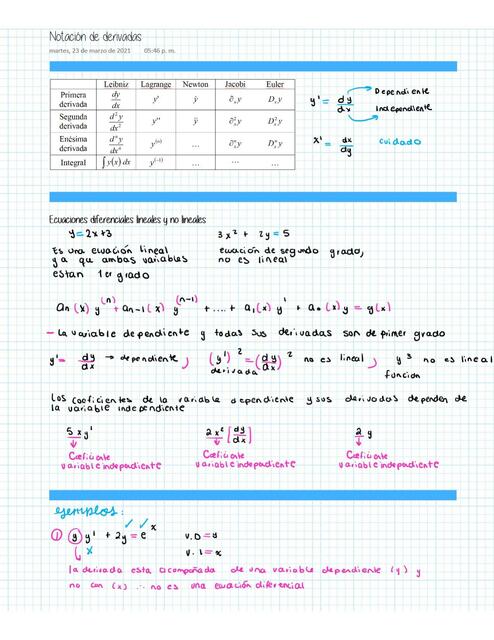 Notación de derivadas
martes, 23 de marzo de 2021 05:46 p. m.
Leibniz Lagrange Newton Jacobi Euler
Primera derivada dy/dx y' ẏ ∂ₓy Dₓy
Segunda derivada d²y/dx² y'' ÿ ∂²ₓy D²ₓy
Enésima derivada dⁿy/dxⁿ y⁽ⁿ⁾ ... ∂ⁿₓy Dⁿₓy
Integral ∫y(x) dx y⁽⁻¹⁾ ... ... ...
y' = dy/dx → Dependiente
→ Independiente
x' = dx/dy cuidado
Ecuaciones diferenciales lineales y no lineales
y = 2x+3
3x² + 2y = 5
Es una ecuación lineal
ya que ambas variables
estan 1er grado
ecuación de segundo grado,
no es lineal
an (x) y⁽ⁿ⁾ + an-1 (x) y⁽ⁿ⁻¹⁾ + .... + a₁(x) y' + a₀(x) y = g(x)
- La variable dependiente y todas sus derivadas son de primer grado
y' = dy/dx → dependiente , (y')² = (dy/dx)² no es lineal , y³ no es lineal
derivada
función
Los coeficientes de la variable dependiente y sus derivadas dependen de
la variable independiente
5xy'
Coeficiente
variable independiente
2x² [dy/dx]
Coeficiente
variable independiente
2y
Coeficiente
variable independiente
ejemplos:
① y y' + 2y = eˣ
x
V.D = y
V.I = x
la derivada esta acompañada de una variable dependiente (y) y
no con (x) ∴ no es una ecuación diferencial